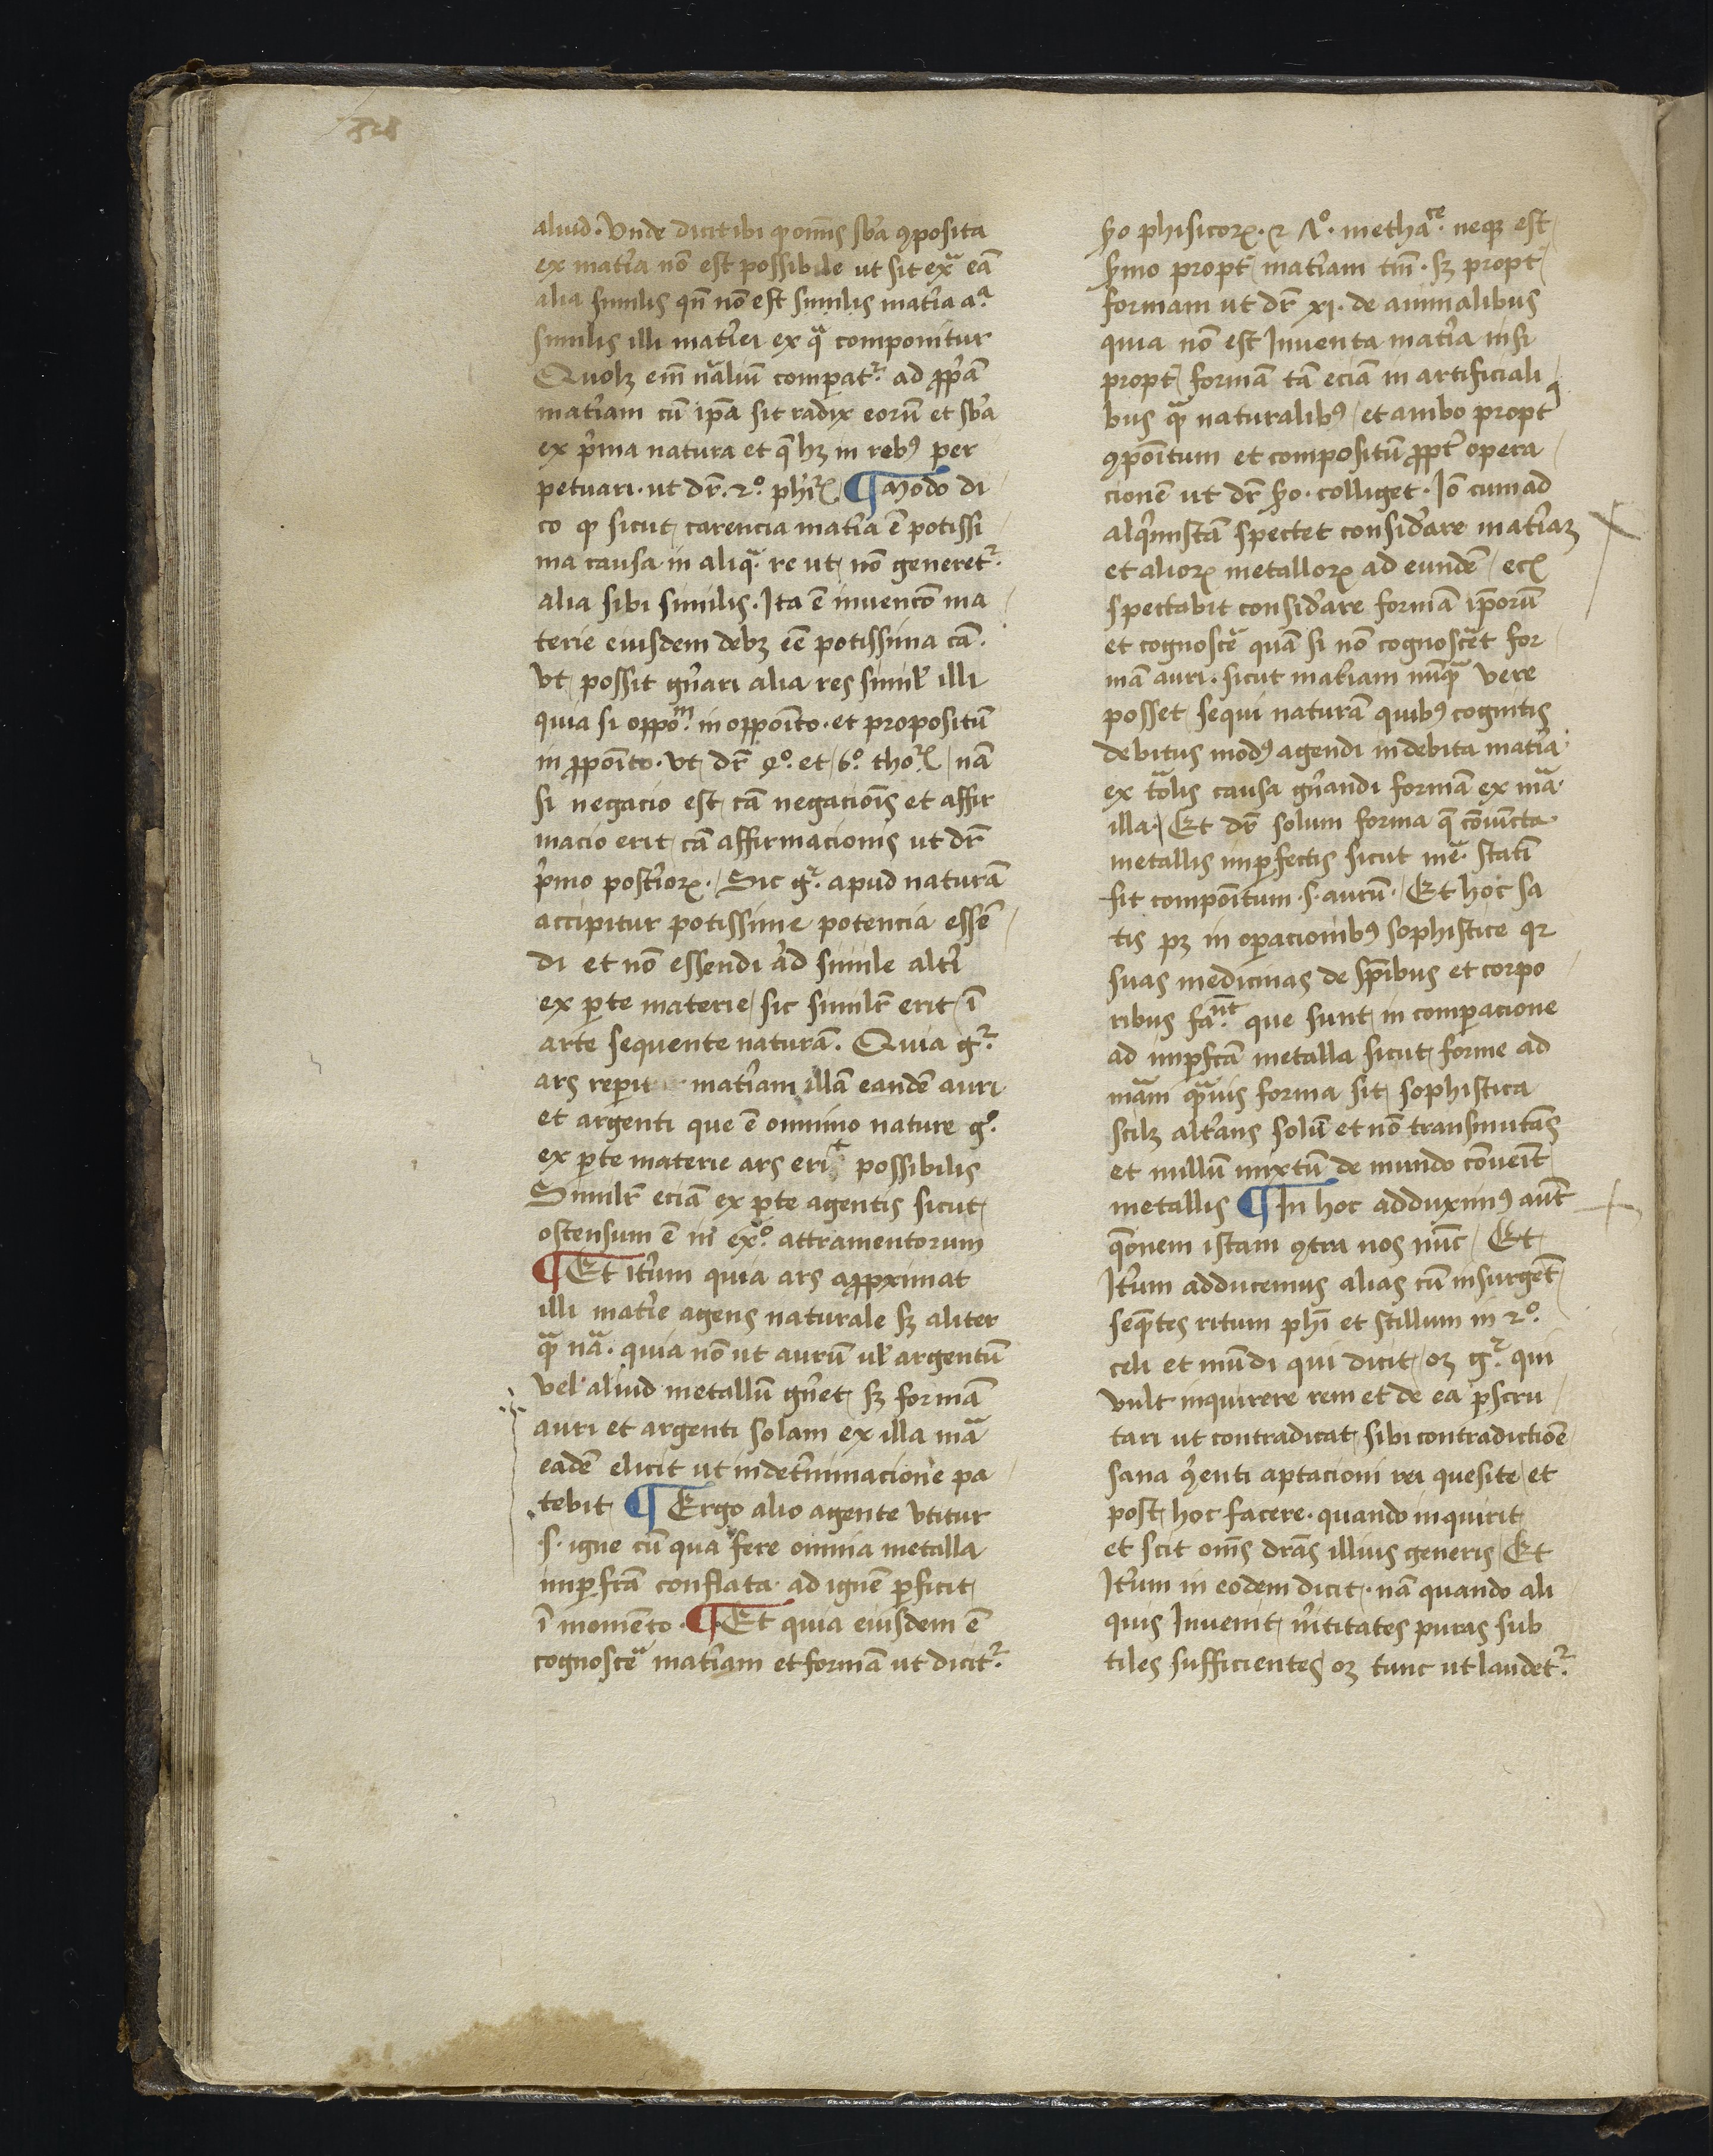 828
aliud. Vnde dicit ibi ꝙ omĩs sb̃a ꝯposita
ex mat̃ia nõ est possibile ut sit ext̃ eã
alia similis qñ nõ est similis mat̃ia aᵃ
similis illi mat̃iei ex qᵃ componitur
Quolꝫ eñi nãlium comparat᷑ ad ꝓp̃ã
mat̃iam cũ ip̃a sit radix eorũ et sb̃a
ex p̃ma natura et q̃ hꝫ in rebꝰ per
petuari. ut dr̃. 2º. phĩꝝ ¶ Modo di
co ꝙ sicut carencia mat̃ia ẽ potissi
ma causa in aliqᵃ re ut nõ generet᷑
alia sibi similis. Ita ẽ inuencõ ma
terie eiusdem debꝫ eẽ potissima cã.
Vt possit gñari alia res simil̃ illi
quia si oppoᵐ in oppõito. et propositũ
in ꝓpõito. Vt dr̃ 4º. et 6º. thoꝝ nã
si negacio est cã negaciõis et affir
macio erit cã affirmacionis ut dr̃
p̃mo post̃ioꝝ. Sic gᵒ. apud naturã
accipitur potissime potencia essẽ
di et nõ essendi ad simile alt̃i
ex ꝑte materie sic simil̃r erit ĩ
arte sequente naturã. Quia g᷑
ars reperit mat̃iam illã eandẽ auri
et argenti que ẽ omnino nature gº.
ex ꝑte materie ars erit possibilis
Simil̃r eciã ex ꝑte agentis sicut
ostensum ẽ in exº. attramentorum
¶ Et it̃um quia ars aꝓpximat
illi mat̃ie agens naturale sꝫ aliter
qᵃ̃ nãᵃ. quia nõ ut aurũ ul̃ argentũ
vel aliud metallũ gñet sꝫ formã
auri et argenti solam ex illa mã
eadẽ elicit ut in det̃minacione pa
tebit ¶ Ergo alio agente vtitur
.s. igne cũ qua fere omnia metalla
imꝑfcã conflata ad ignẽ ꝑficit
ĩ momẽto. ¶ Et quia eiusdem ẽ
cognosc̃e mat̃iam et formã ut dicit᷑
s̃o phisicoꝝ. et Λº. methaᶜᵉ. neqꝫ est
p̃mo propt̃ mat̃iam tm̃. sꝫ propt̃
formam ut dr̃ xj. de animalibus
quia nõ est Inuenta mat̃ia nisi
propt̃ formã tã eciã in artificiali
bus qᵃ̃ naturalibꝰ et ambo propt̃
ꝯpõitum et compositũ ꝓpt̃ opera
cionẽ ut dr̃ s̃o. colliget. Iõ cum ad
alq̃mistã spectet consid̃are mat̃iaꝫ
et alioꝝ metalloꝝ ad eundẽ ecĩ
spectabit consid̃are formã ip̃orũ
et cognosc̃e quã si nõ cognosc̃et for
mã auri. sicut mat̃iam nũqᵃ̃ vere
posset sequi naturã quibꝰ cognitis
debitus modꝰ agendi in debita mat̃ia
ex t̃alis causa gñandi formã ex mã.
illa. Et dr̃ solum forma q̃ cõiuncta
metallis imꝑfectis sicut mẽ. statĩ
fit compõitum .s. aurũ. Et hoc sa
tis pꝫ in operacionibꝰ sophistice qꝛ
suas medicinas de sp̃ibus et corpo
ribus faᵘⁿᵗ. que sunt in comparacione
ad imꝑfcã metalla sicut forme ad
mãm qᵃ̃uis forma sit sophistica
scilꝫ alt̃ans solũ et nõ transmutãs
et nullũ mixtũ de mundo cõueĩt
metallis ¶ In hoc adduximꝰ aũt
q̃onem istam ꝯtra nos nũc Et
It̃um adducemus alias cũ insurgẽt
seqᵉ̃tes ritum phĩ et stillum in 2º.
celi et mũdi qui dicit oꝫ g᷑ qui
vult inquirere rem et de ea ꝑscru
tari ut contradicat sibi contradictiõe
sana ꝯ̃enti aptacioni rei quesite et
post hoc facere. quando inquirit
et scit om̃s dr̃as illius generis Et
It̃um in eodem dicit. nã quando ali
quis Inuenit ũitates puras sub
tiles sufficientes oꝫ tunc ut laudet᷑